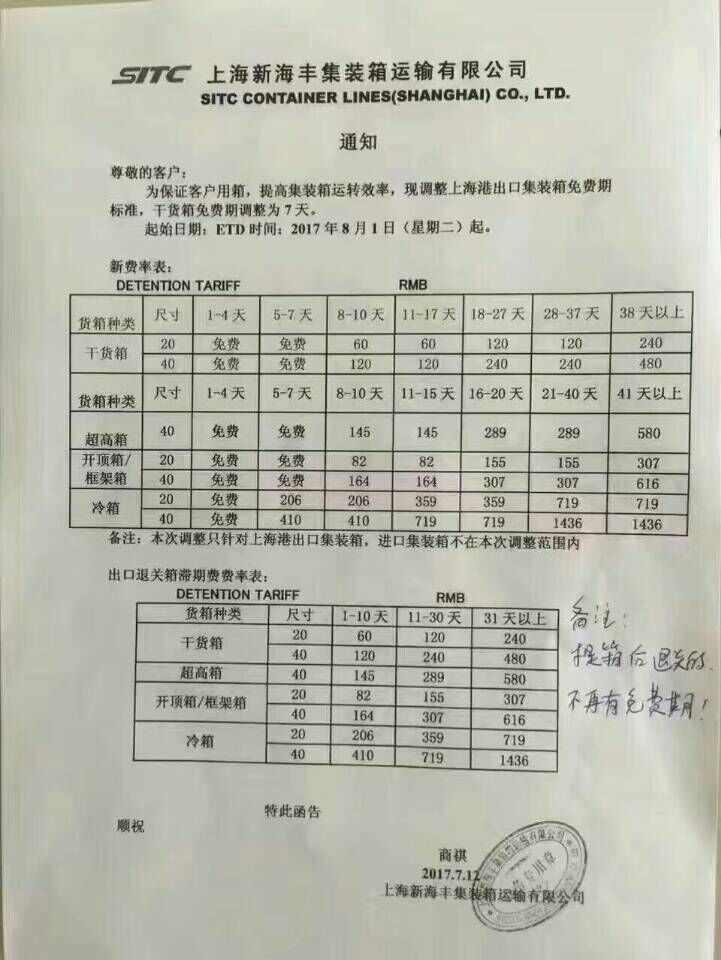 SITC 上海新海丰集装箱运输有限公司
SITC CONTAINER LINES(SHANGHAI) CO., LTD.
通知
尊敬的客户：
为保证客户用箱，提高集装箱运转效率，现调整上海港出口集装箱免费期
标准，干货箱免费期调整为 7 天。
起始日期：ETD 时间：2017 年 8 月 1 日（星期二）起。
新费率表：
DETENTION TARIFF RMB
货箱种类 尺寸 1-4 天 5-7 天 8-10 天 11-17 天 18-27 天 28-37 天 38 天以上
干货箱 20 免费 免费 60 60 120 120 240
40 免费 免费 120 120 240 240 480
货箱种类 尺寸 1-4 天 5-7 天 8-10 天 11-15 天 16-20 天 21-40 天 41 天以上
超高箱 40 免费 免费 145 145 289 289 580
开顶箱/框架箱 20 免费 免费 82 82 155 155 307
40 免费 免费 164 164 307 307 616
冷箱 20 免费 206 206 359 359 719 719
40 免费 410 410 719 719 1436 1436
备注：本次调整只针对上海港出口集装箱，进口集装箱不在本次调整范围内
出口退关箱滞期费费率表：
DETENTION TARIFF RMB
货箱种类 尺寸 1-10 天 11-30 天 31 天以上
干货箱 20 60 120 240
40 120 240 480
超高箱 40 145 289 580
开顶箱/框架箱 20 82 155 307
40 164 307 616
冷箱 20 206 359 719
40 410 719 1436
备注：
提箱后退关的
不再有免费期！
特此函告
顺祝
商祺
2017.7.12
上海新海丰集装箱运输有限公司